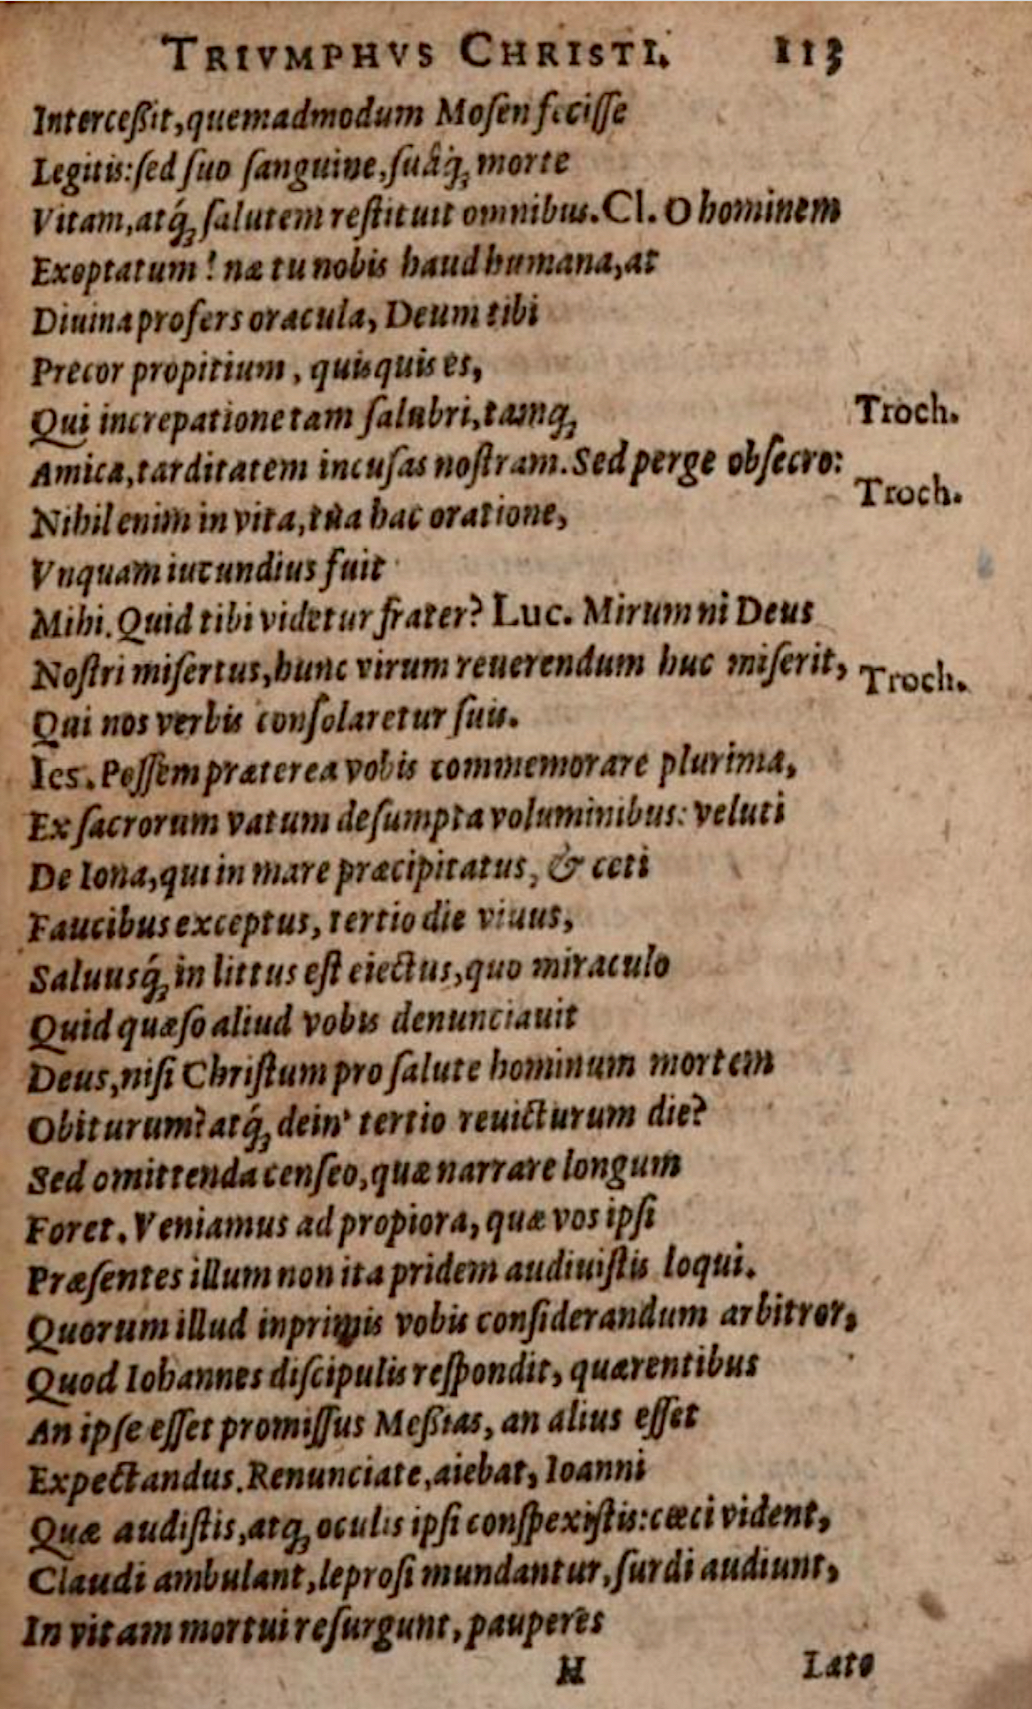 TRIVMPHVS CHRISTI. 113
Interceßit, quemadmodum Mosen fecisse
Legitis: sed suo sanguine, suâq́; morte
Vitam, atq́; salutem restituit omnibus. Cl. O hominem
Exoptatum! næ tu nobis haud humana, at
Diuina profers oracula, Deum tibi
Precor propitium, quisquis es,
Qui increpatione tam salubri, tamq; Troch.
Amica, tarditatem incusas nostram. Sed perge obsecro:
Nihil enim in vita, tua hac oratione, Troch.
Vnquam iucundius fuit
Mihi. Quid tibi videtur frater? Luc. Mirum ni Deus
Nostri misertus, hunc virum reuerendum huc miserit, Troch.
Qui nos verbis consolaretur suis.
Ies. Possem præterea vobis commemorare plurima,
Ex sacrorum vatum desumpta voluminibus: veluti
De Iona, qui in mare præcipitatus, & ceti
Faucibus exceptus, tertio die viuus,
Saluusq́; in littus est eiectus, quo miraculo
Quid quæso aliud vobis denunciauit
Deus, nisi Christum pro salute hominum mortem
Obiturum? atq́; dein' tertio reuicturum die?
Sed omittenda censeo, quæ narrare longum
Foret. Veniamus ad propiora, quæ vos ipsi
Præsentes illum non ita pridem audiuistis loqui.
Quorum illud inprimis vobis considerandum arbitror,
Quod Iohannes discipulis respondit, quærentibus
An ipse esset promissus Meßias, an alius esset
Expectandus. Renunciate, aiebat, Ioanni
Quæ audistis, atq; oculis ipsi conspexistis: cæci vident,
Claudi ambulant, leprosi mundantur, surdi audiunt,
In vitam mortui resurgunt, pauperes
H Læto